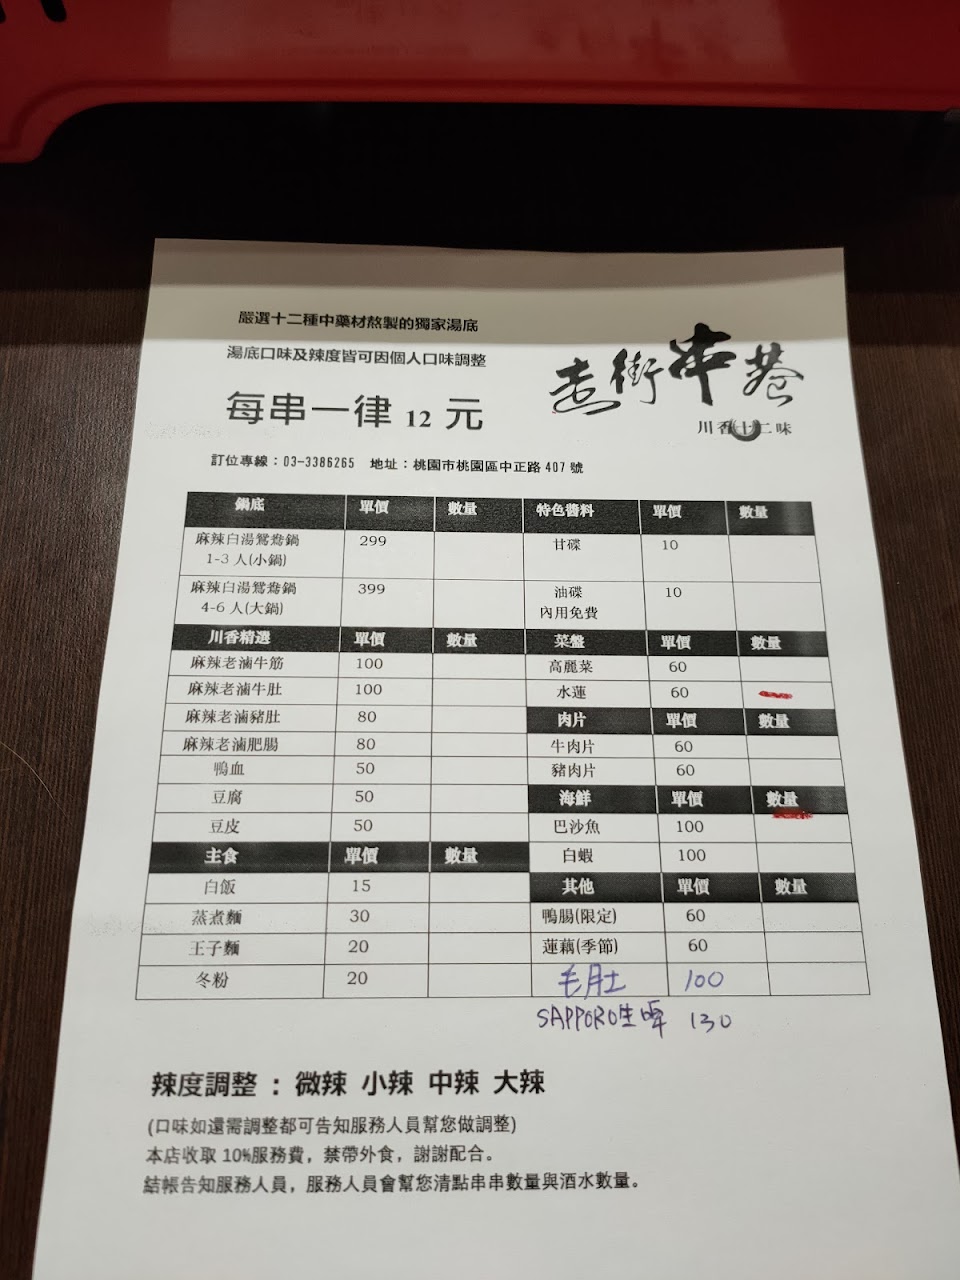 嚴選十二種中藥材熬製的獨家湯底
湯底口味及辣度皆可因個人口味調整
走街串巷
每串一律 12 元
川香十二味
訂位專線：03-3386265 地址：桃園市桃園區中正路 407 號
鍋底 單價 數量 特色醬料 單價 數量
麻辣白湯鴛鴦鍋 299 甘碟 10
1-3 人(小鍋)
麻辣白湯鴛鴦鍋 399 油碟 10
4-6 人(大鍋) 內用免費
川香精選 單價 數量 菜盤 單價 數量
麻辣老滷牛筋 100 高麗菜 60
麻辣老滷牛肚 100 水蓮 60
麻辣老滷豬肚 80 肉片 單價 數量
麻辣老滷肥腸 80 牛肉片 60
鴨血 50 豬肉片 60
豆腐 50 海鮮 單價 數量
豆皮 50 巴沙魚 100
主食 單價 數量 白蝦 100
白飯 15 其他 單價 數量
蒸煮麵 30 鴨腸(限定) 60
王子麵 20 蓮藕(季節) 60
冬粉 20 毛肚 100
SAPPORO生啤 130
辣度調整 ： 微辣 小辣 中辣 大辣
(口味如還需調整都可告知服務人員幫您做調整)
本店收取 10%服務費，禁帶外食，謝謝配合。
結帳告知服務人員，服務人員會幫您清點串串數量與酒水數量。